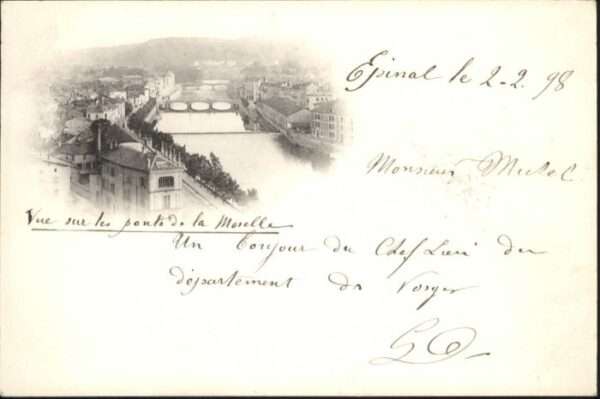 Épinal le 2-2. 98
Monsieur
Vue sur les ponts de la Moselle
Un bonjour du Chef Lieu du
département des Vosges